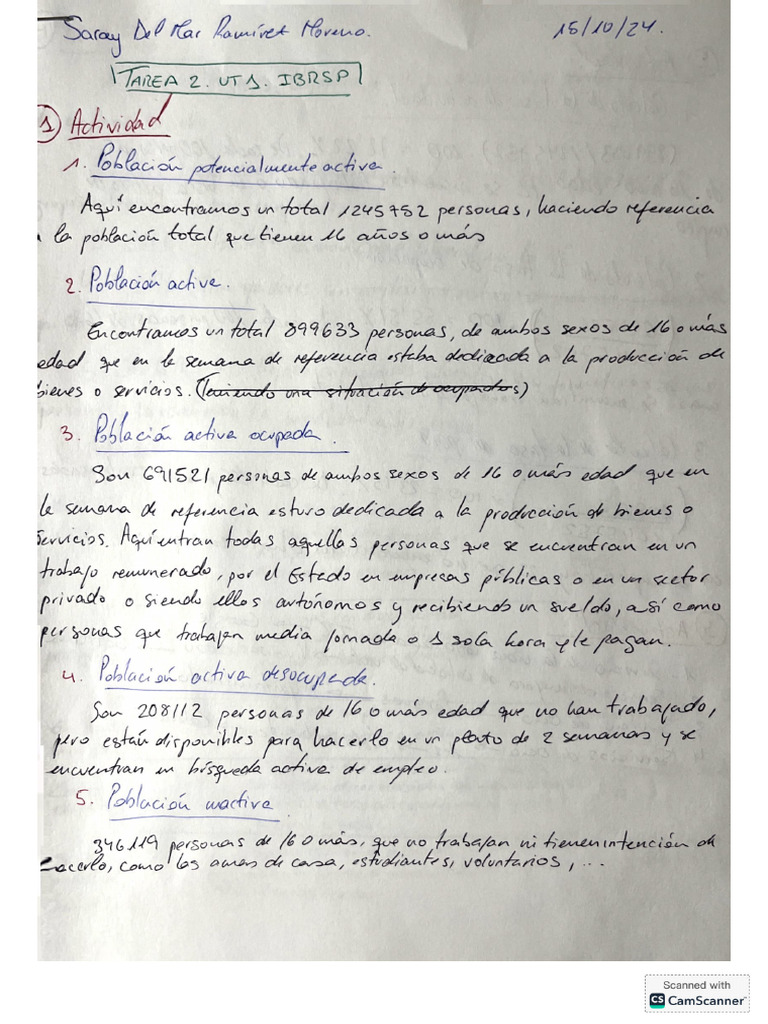 Saray Del Mar Ramírez Moreno. 15/10/24.
TAREA 2. UT1. IBRSP
1) Actividad
1. Población potencialmente activa.
Aquí encontramos un total 1245752 personas, haciendo referencia
a la población total que tienen 16 años o más
2. Población active.
Encontramos un total 899633 personas, de ambos sexos de 16 o más
edad que en la semana de referencia estaba dedicada a la producción de
bienes o servicios. (Teniendo una situación de ocupados)
3. Población activa ocupada.
Son 691521 personas de ambos sexos de 16 o más edad que en
la semana de referencia esturo dedicada a la producción de bienes o
servicios. Aquí entran todas aquellas personas que se encuentran en un
trabajo remunerado, por el Estado en empresas públicas o en un sector
privado o siendo ellos autónomos y recibiendo un sueldo, así como
personas que trabajen media jornada o 1 sola hora y le pagan.
4. Población activa desocupada.
Son 208112 personas de 16 o más edad que no han trabajado,
pero están disponibles para hacerlo en un plazo de 2 semanas y se
encuentran en búsqueda activa de empleo.
5. Población inactiva
346119 personas de 16 o más, que no trabajan ni tienen intención de
hacerlo, como las amas de casa, estudiantes, voluntarios, ...
Scanned with
CS CamScanner